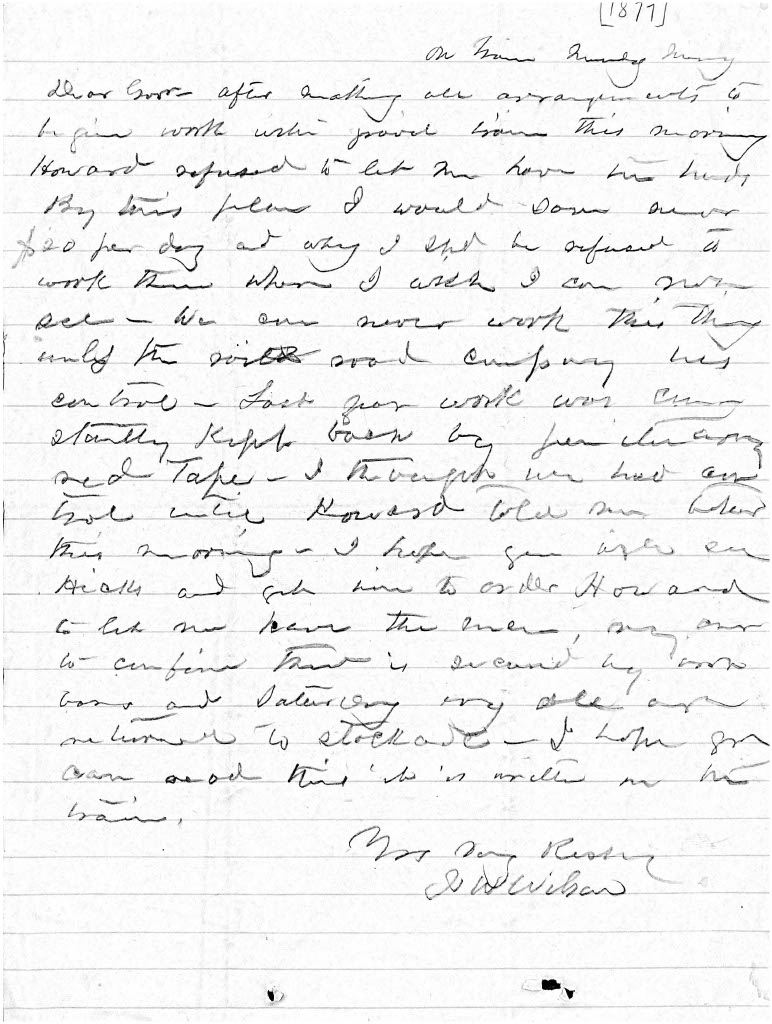 [1877]
On train Monday Morning
Dear Govr after making all arrangements to
begin work with gravel train this morning
Howard refused to let me have the hands
By this plan I would save near
$20 per day and why I shd be refused to
work them where I wish I can not
see – We can never work this thing
unless the rail road company has
control – Last year work was con
stantly kept back by penitentiary
red Tape – I thought we had con
trol until Howard told me
this morning – I hope you will see
Hicks and get him to order Howard
to let me have the men,
to confine them is secured by iron
bars and Saturday are
returned to stockade – I hope you
can read this it is written on the
train.
Yrs Very Respy
J W Wilson